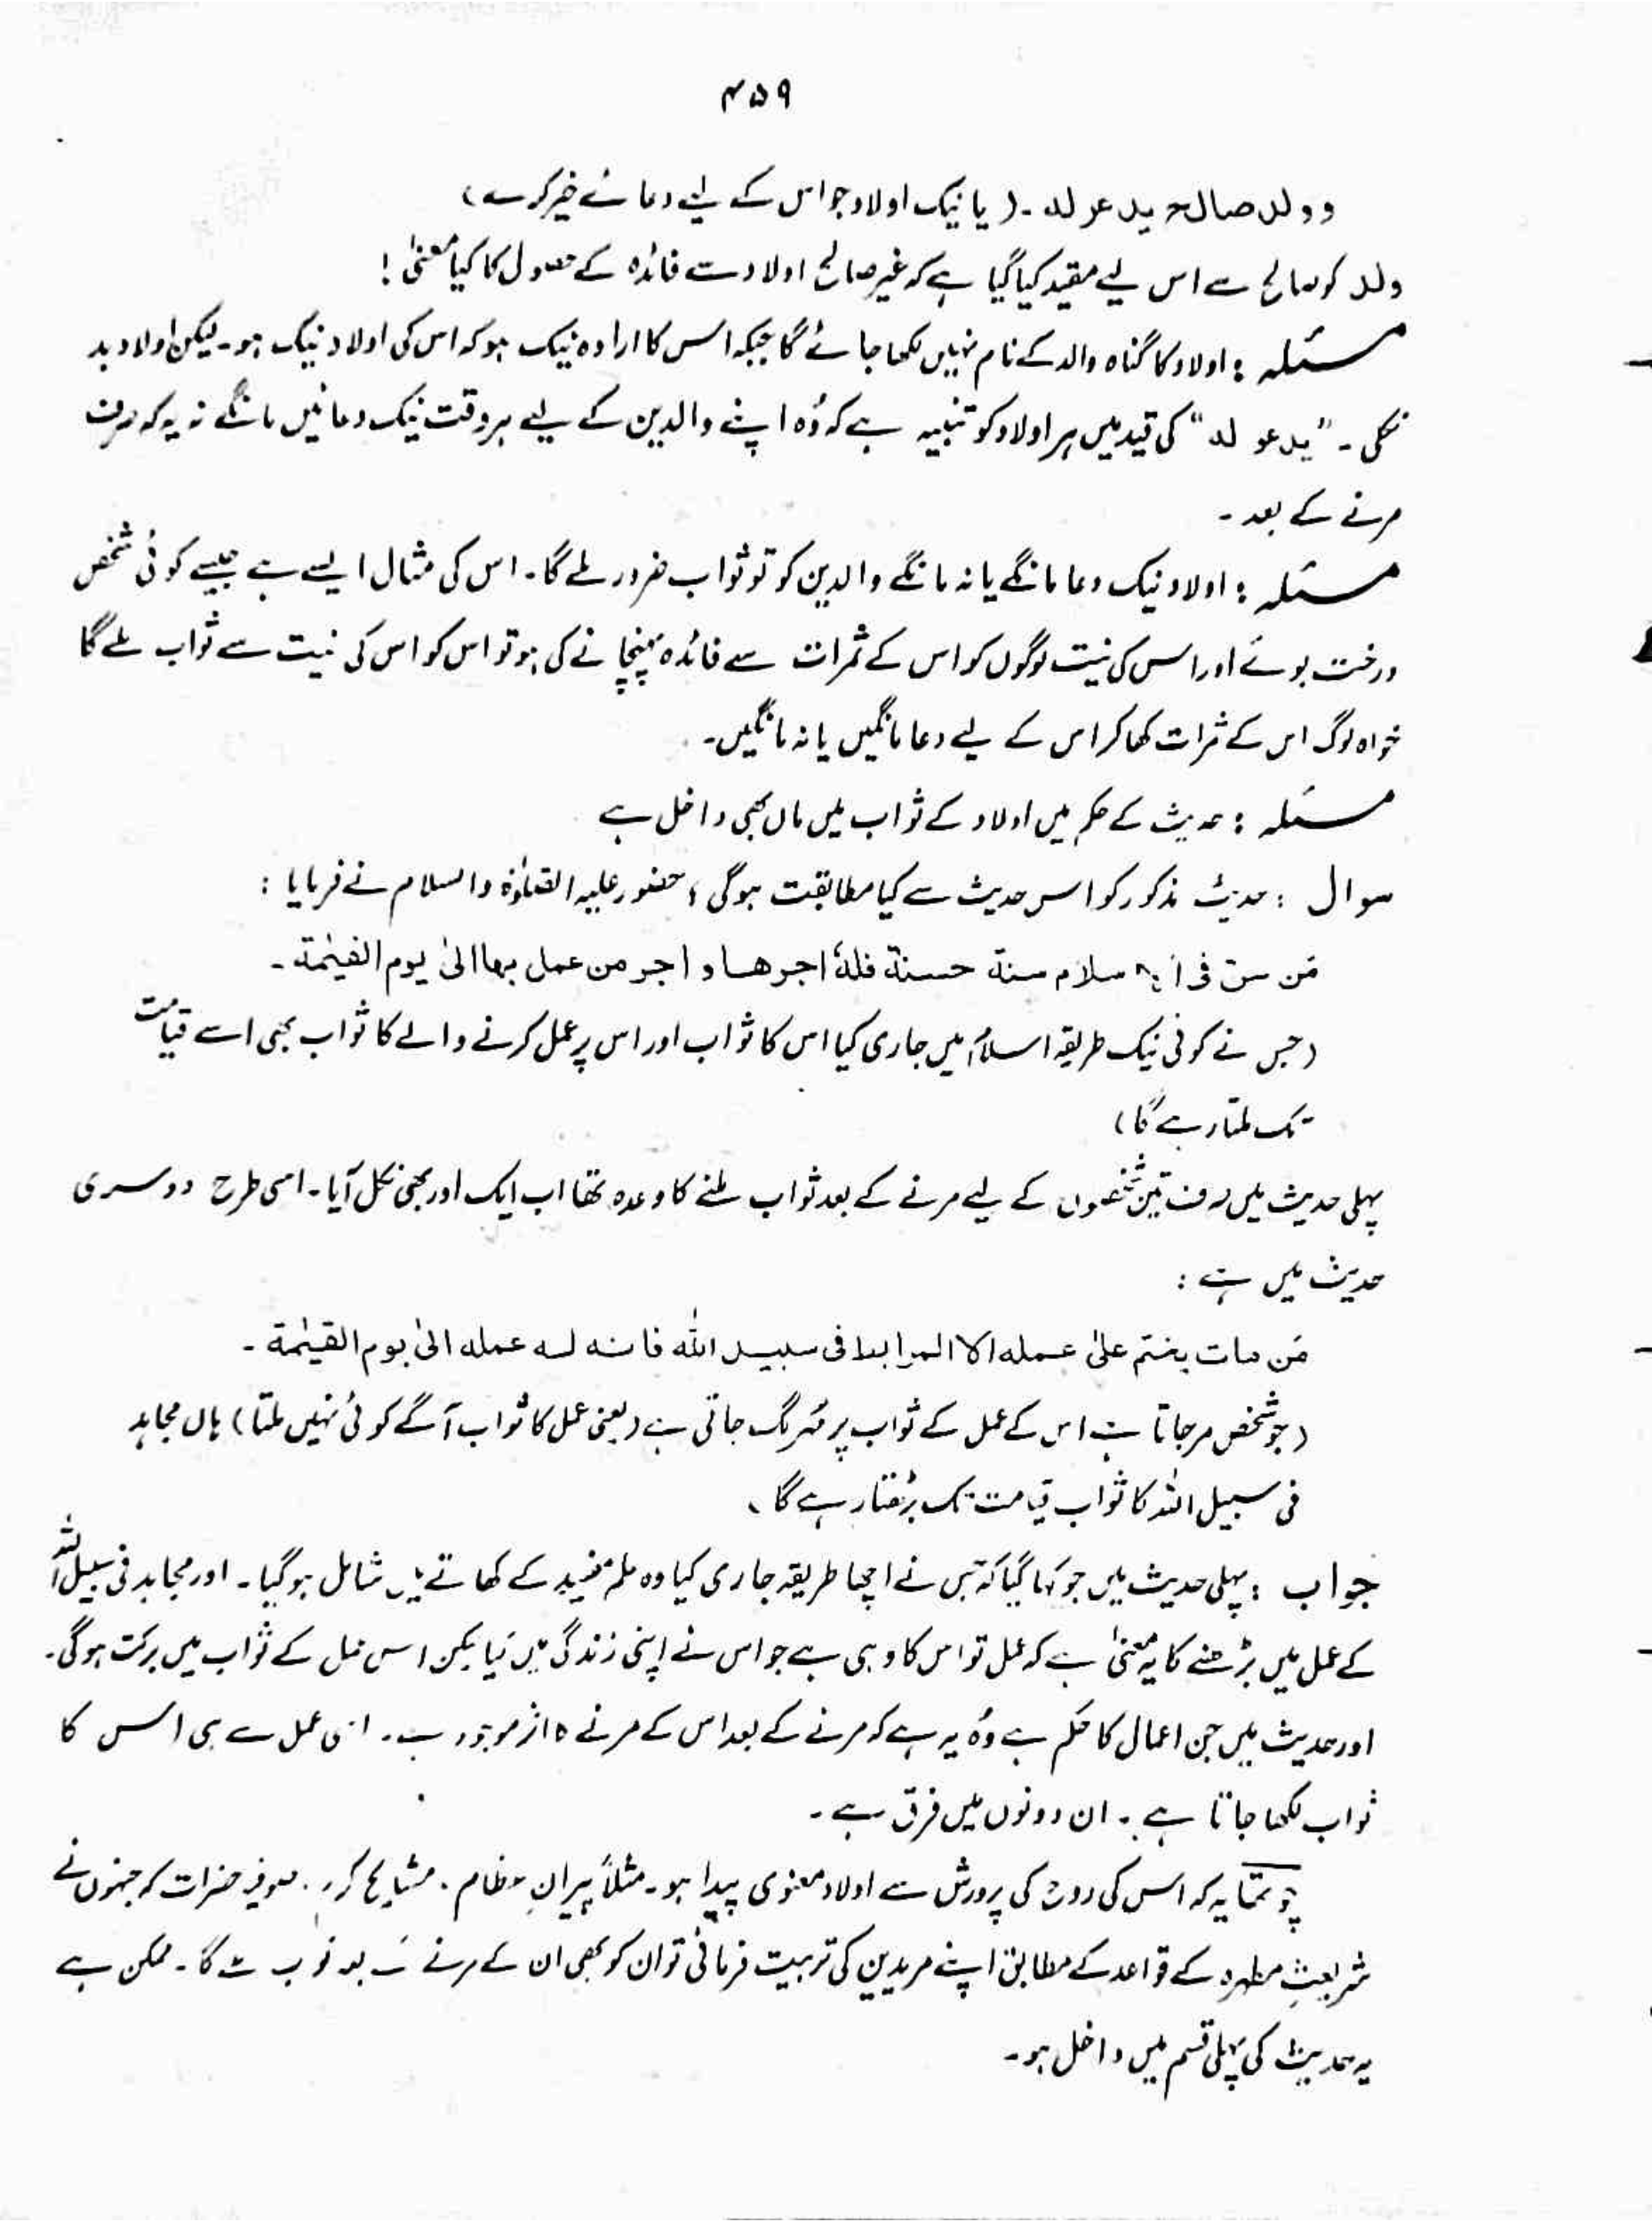 ۴۵۹
وولد صالح يدعو له ۔ ( یا نیک اولاد جو اس کے لیے دعائے خیر کرے )
ولد کو صالح سے اس لیے مقید کیا گیا ہے کہ غیر صالح اولاد سے فائدہ کے حصول کا کیا معنیٰ !
مسئلہ : اولاد کا گناہ والد کے نام نہیں لکھا جائے گا جبکہ اس کا ارادہ نیک ہو کہ اس کی اولاد نیک ہو۔ لیکن اولاد بد
نکلی ۔ "يدعو له" کی قید میں ہر اولاد کو تنبیہ ہے کہ وُہ اپنے والدین کے لیے ہر وقت نیک دعائیں مانگے نہ یہ کہ صرف
مرنے کے بعد ۔
مسئلہ : اولاد نیک دعا مانگے یا نہ مانگے والدین کو تو ثواب ضرور ملے گا۔ اس کی مثال ایسے ہے جیسے کوئی شخص
درخت بوئے اور اس کی نیت لوگوں کو اس کے ثمرات سے فائدہ پہنچانے کی ہو تو اس کو اس کی نیت سے ثواب ملے گا
خواہ لوگ اس کے ثمرات کھا کر اس کے لیے دعا مانگیں یا نہ مانگیں۔
مسئلہ : حدیث کے حکم میں اولاد کے ثواب میں ماں بھی داخل ہے
سوال : حدیث مذکور کو اس حدیث سے کیا مطابقت ہوگی ؛ حضور علیہ الصلوٰۃ والسلام نے فرمایا :
مَن سن فی الاسلام سنة حسنة فلهٗ اجرها و اجر من عمل بها الیٰ یوم القیٰمة ۔
( جس نے کوئی نیک طریقہ اسلام میں جاری کیا اس کا ثواب اور اس پر عمل کرنے والے کا ثواب بھی اسے قیامت
تک ملتا رہے گا )
پہلی حدیث میں صرف تین شخصوں کے لیے مرنے کے بعد ثواب ملنے کا وعدہ تھا اب ایک اور بھی نکل آیا۔ اسی طرح دوسری
حدیث میں ہے :
مَن مات یختم علیٰ عمله الا المرابط فی سبیل اللّٰه فانه له عمله الیٰ یوم القیٰمة ۔
( جو شخص مر جاتا ہے اس کے عمل کے ثواب پر مُہر لگ جاتی ہے (یعنی عمل کا ثواب آگے کوئی نہیں ملتا ) ہاں مجاہد
فی سبیل اللہ کا ثواب قیامت تک بڑھتا رہے گا )
جواب : پہلی حدیث میں جو کہا گیا کہ جس نے اچھا طریقہ جاری کیا وہ علم مفید کے کھاتے میں شامل ہو گیا ۔ اور مجاہد فی سبیل اللہ
کے عمل میں بڑھنے کا یہ معنیٰ ہے کہ عمل تو اس کا وہی ہے جو اس نے اپنی زندگی میں کیا لیکن اس عمل کے ثواب میں برکت ہوگی۔
اور حدیث میں جن اعمال کا حکم ہے وُہ یہ ہے کہ مرنے کے بعد اس کے مرنے از موجود ہے۔ عمل سے ہی اس کا
ثواب لکھا جاتا ہے ۔ ان دونوں میں فرق ہے ۔
چوتھا یہ کہ اس کی روح کی پرورش سے اولاد معنوی پیدا ہو۔ مثلاً پیرانِ عظام ، مشایخ صوفیہ حضرات کہ جنہوں نے
شریعتِ مطہرہ کے قواعد کے مطابق اپنے مریدین کی تربیت فرمائی تو ان کو بھی ان کے مرنے کے بعد ثواب ملے گا ۔ ممکن ہے
یہ حدیث کی پہلی قسم میں داخل ہو ۔